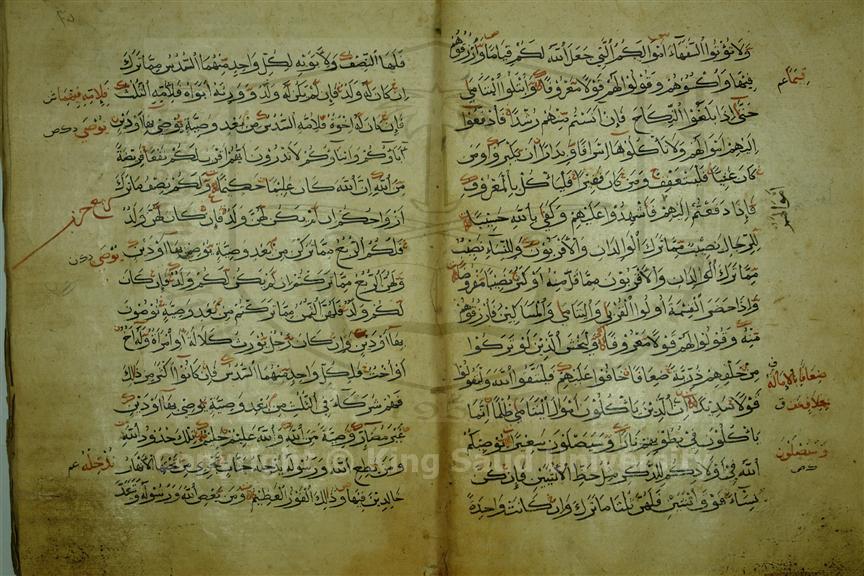 ولا تؤتوا السفهاء اموالكم التي جعل الله لكم قياما وارزقوهم
فيها واكسوهم وقولوا لهم قولا معروفا وابتلوا اليتامى
حتى اذا بلغوا النكاح فان انستم منهم رشدا فادفعوا
اليهم اموالهم ولا تاكلوها اسرافا وبدارا ان يكبروا ومن
كان غنيا فليستعفف ومن كان فقيرا فلياكل بالمعروف
فاذا دفعتم اليهم فاشهدوا عليهم وكفى بالله حسيبا
للرجال نصيب مما ترك الوالدان والاقربون وللنساء نصيب
مما ترك الوالدان والاقربون مما قل منه او كثر نصيبا مفروضا
واذا حضر القسمة اولوا القربى واليتامى والمساكين فارزقوهم
منه وقولوا لهم قولا معروفا وليخش الذين لو تركوا
من خلفهم ذرية ضعافا خافوا عليهم فليتقوا الله وليقولوا
قولا سديدا ان الذين ياكلون اموال اليتامى ظلما انما
ياكلون في بطونهم نارا وسيصلون سعيرا يوصيكم
الله في اولادكم للذكر مثل حظ الانثيين فان كن
نساء فوق اثنتين فلهن ثلثا ما ترك وان كانت واحدة
قيما عم
ضعافا بالامالة
وسيصلون
فلها النصف ولابويه لكل واحد منهما السدس مما ترك
ان كان له ولد فان لم يكن له ولد وورثه ابواه فلامه الثلث
فان كان له اخوة فلامه السدس من بعد وصية يوصي بها او دين
اباؤكم وابناؤكم لا تدرون ايهم اقرب لكم نفعا فريضة
من الله ان الله كان عليما حكيما ولكم نصف ما ترك
ازواجكم ان لم يكن لهن ولد فان كان لهن ولد
فلكم الربع مما تركن من بعد وصية يوصين بها او دين
ولهن الربع مما تركتم ان لم يكن لكم ولد فان كان
لكم ولد فلهن الثمن مما تركتم من بعد وصية توصون
بها او دين وان كان رجل يورث كلالة او امراة وله اخ
او اخت فلكل واحد منهما السدس فان كانوا اكثر من ذلك
فهم شركاء في الثلث من بعد وصية يوصى بها او دين
غير مضار وصية من الله والله عليم حليم تلك حدود الله
ومن يطع الله ورسوله يدخله جنات تجري من تحتها الانهار
خالدين فيها وذلك الفوز العظيم ومن يعص الله ورسوله ويتعد
يوصى
يوصى
ندخله عم
Copyright © King Saud University